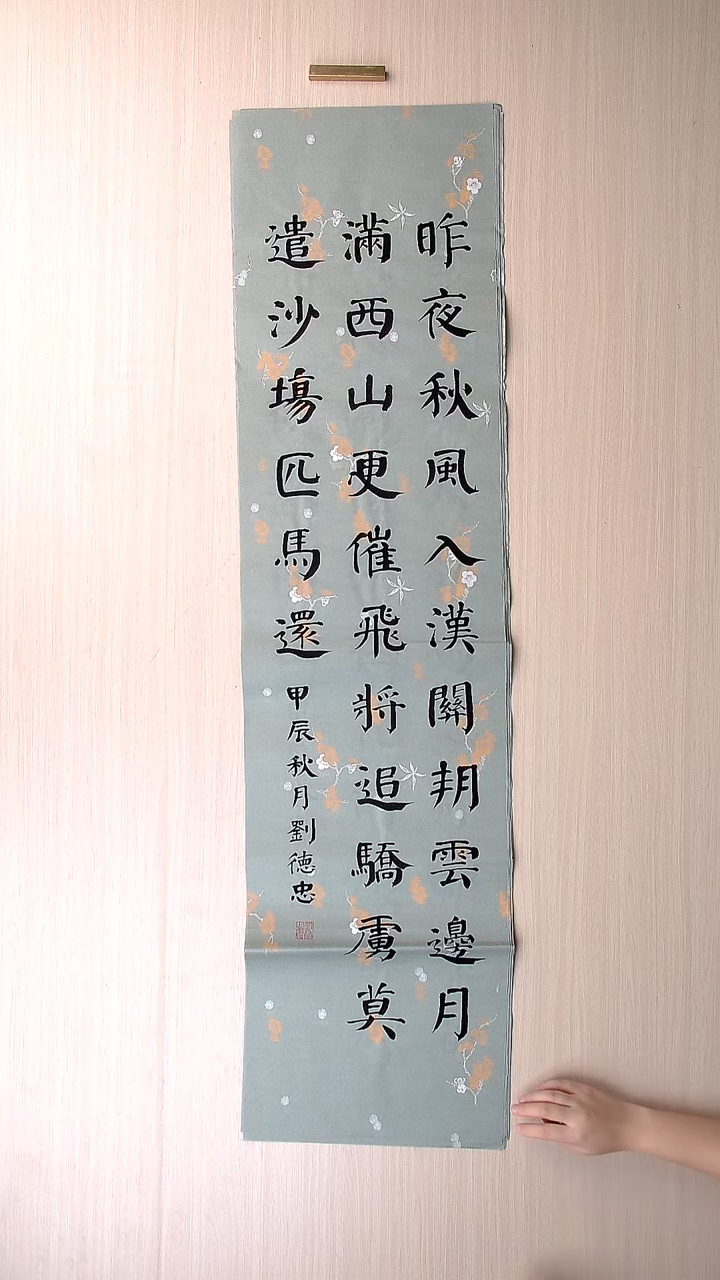 昨夜秋風入漢關朔雲邊月
滿西山更催飛將追驕虜莫
遣沙塲匹馬還
甲辰秋月劉徳忠